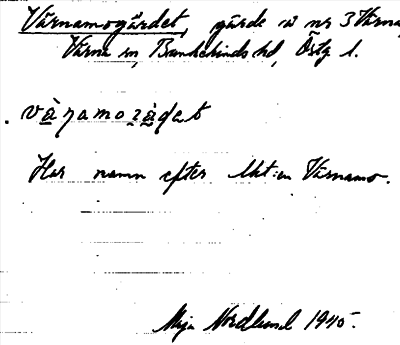 Värnamogärdet, gärde å nr 3 Värna
Värna sn, Bankekinds hd, Östg. l.
. vàṇamoʒàḍet
Har namn efter lht:en Värnamo.
Maja Nordlund 1945.